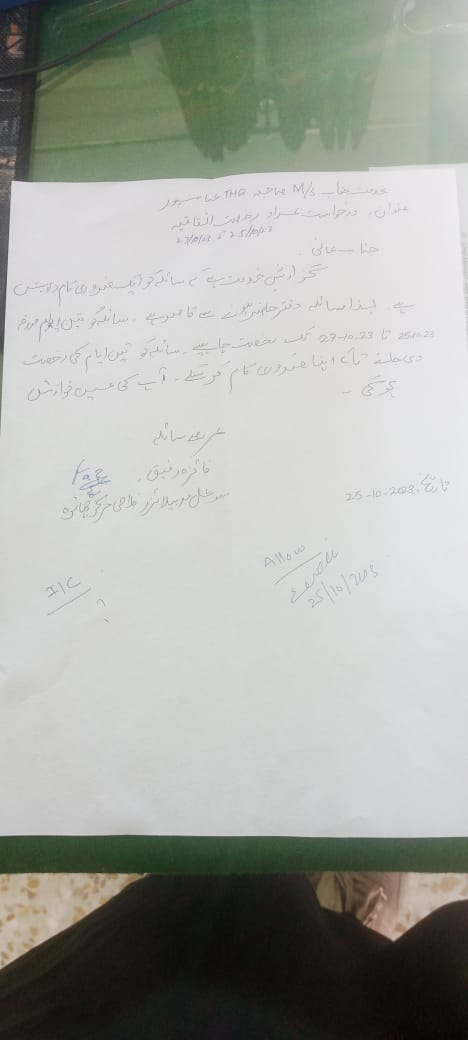 بخدمت جناب M/S صاحبہ THQ عباسپور
عنوان: درخواست بمراد رخصت اتفاقیہ
25/10/23 تا 27/10/23
جناب عالی
گزارش خدمت ہے کہ سائلہ کو ایک ضروری کام درپیش
ہے۔ لہذا سائلہ دفتر حاضر ہونے سے قاصر ہے۔ سائلہ کو تین ایام مورخہ
25.10.23 تا 27-10-23 تک رخصت چاہیے۔ سائلہ کو تین ایام کی رخصت
دی جائے تاکہ اپنا ضروری کام کر سکے۔ آپ کی عین نوازش
ہو گی۔
عرضے سائلہ
فائزہ رفیق
سوشل موبیلائزر فلاحی مرکز
تاریخ: 25-10-2023
Allow
25/10/2023
I/C
?